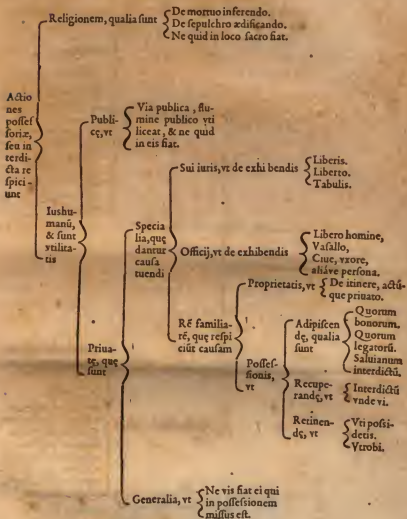 Actio
nes
possess
soriæ,
seu in
terdi-
cta re
spici-
unt
Religionem, qualia sunt
De mortuo inferendo.
De sepulchro ædificando.
Ne quid in loco sacro fiat.
Iushu-
manũ,
& sunt
vtilita-
tis
Publi-
cę, vt
Via publica, flu-
mine publico vti
liceat, & ne quid
in eis fiat.
Priua-
tę, quę
sunt
Specia
lia, quę
dantur
causa
tuendi
Sui iuris, vt de exhi bendis
Liberis.
Liberto.
Tabulis.
Officij, vt de exhibendis
Libero homine,
Vasallo,
Ciue, vxore,
aliáve persona.
Rẽ familia-
rẽ, quę respi
ciũt causam
Proprietatis, vt
De itinere, actũ-
que priuato.
Posses-
sionis,
vt
Adipiscen
dę, qualia
sunt
Quorum
bonorum.
Quorum
legatorũ.
Saluianum
interdictũ.
Recupe-
randę, vt
Interdictũ
vnde vi.
Retinen-
dę, vt
Vti possi-
detis.
Vtrobi.
Generalia, vt
Ne vis fiat ei qui
in possessionem
missus est.